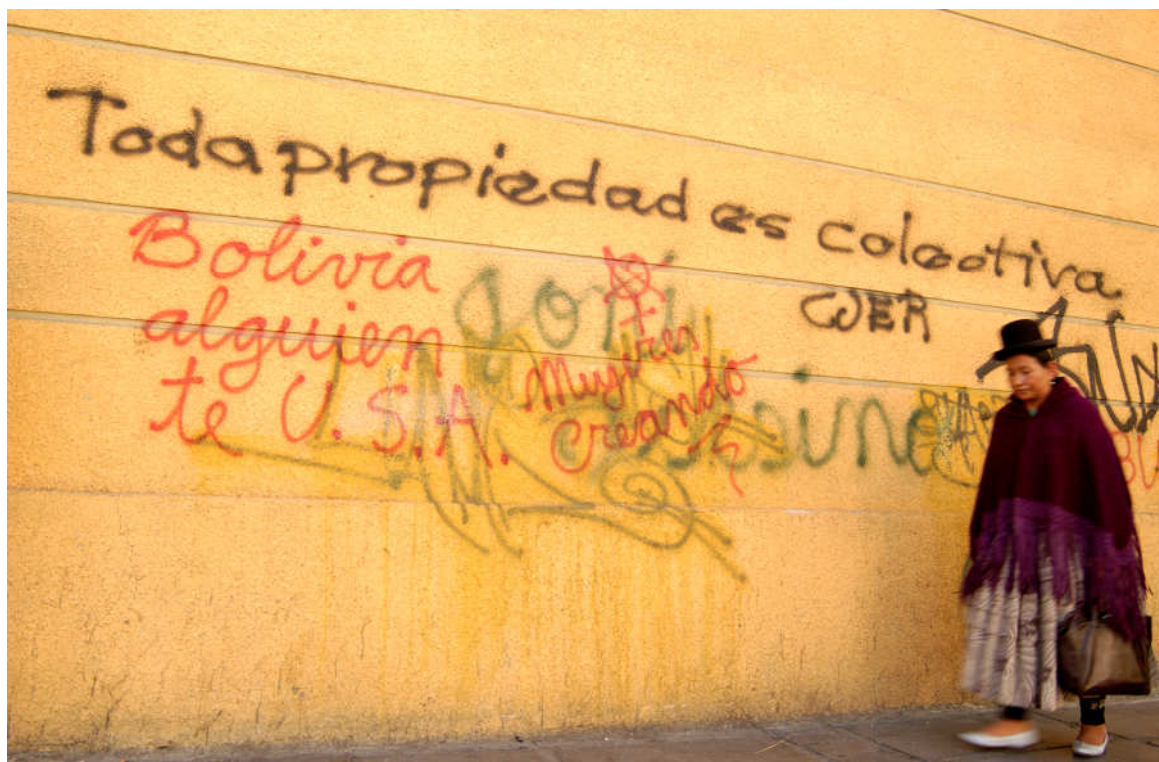 Toda propiedad es colectiva
CJER
Bolivia
alguien
te U.S.A.
Goni
Mujeres
creando